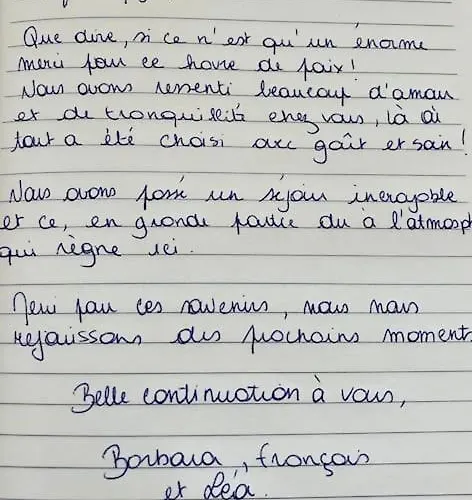 Que dire, si ce n'est qu'un énorme
merci pour ce havre de paix!
Nous avons ressenti beaucoup d'amour
et de tranquillité chez vous, là où
tout a été choisi avec goût et soin!
Nous avons passé un séjour incroyable
et ce, en grande partie du à l'atmosph
qui règne ici.
Merci pour ces souvenirs, nous nous
réjouissons des prochains moment
Belle continuation à vous,
Barbara, François
et Léa.